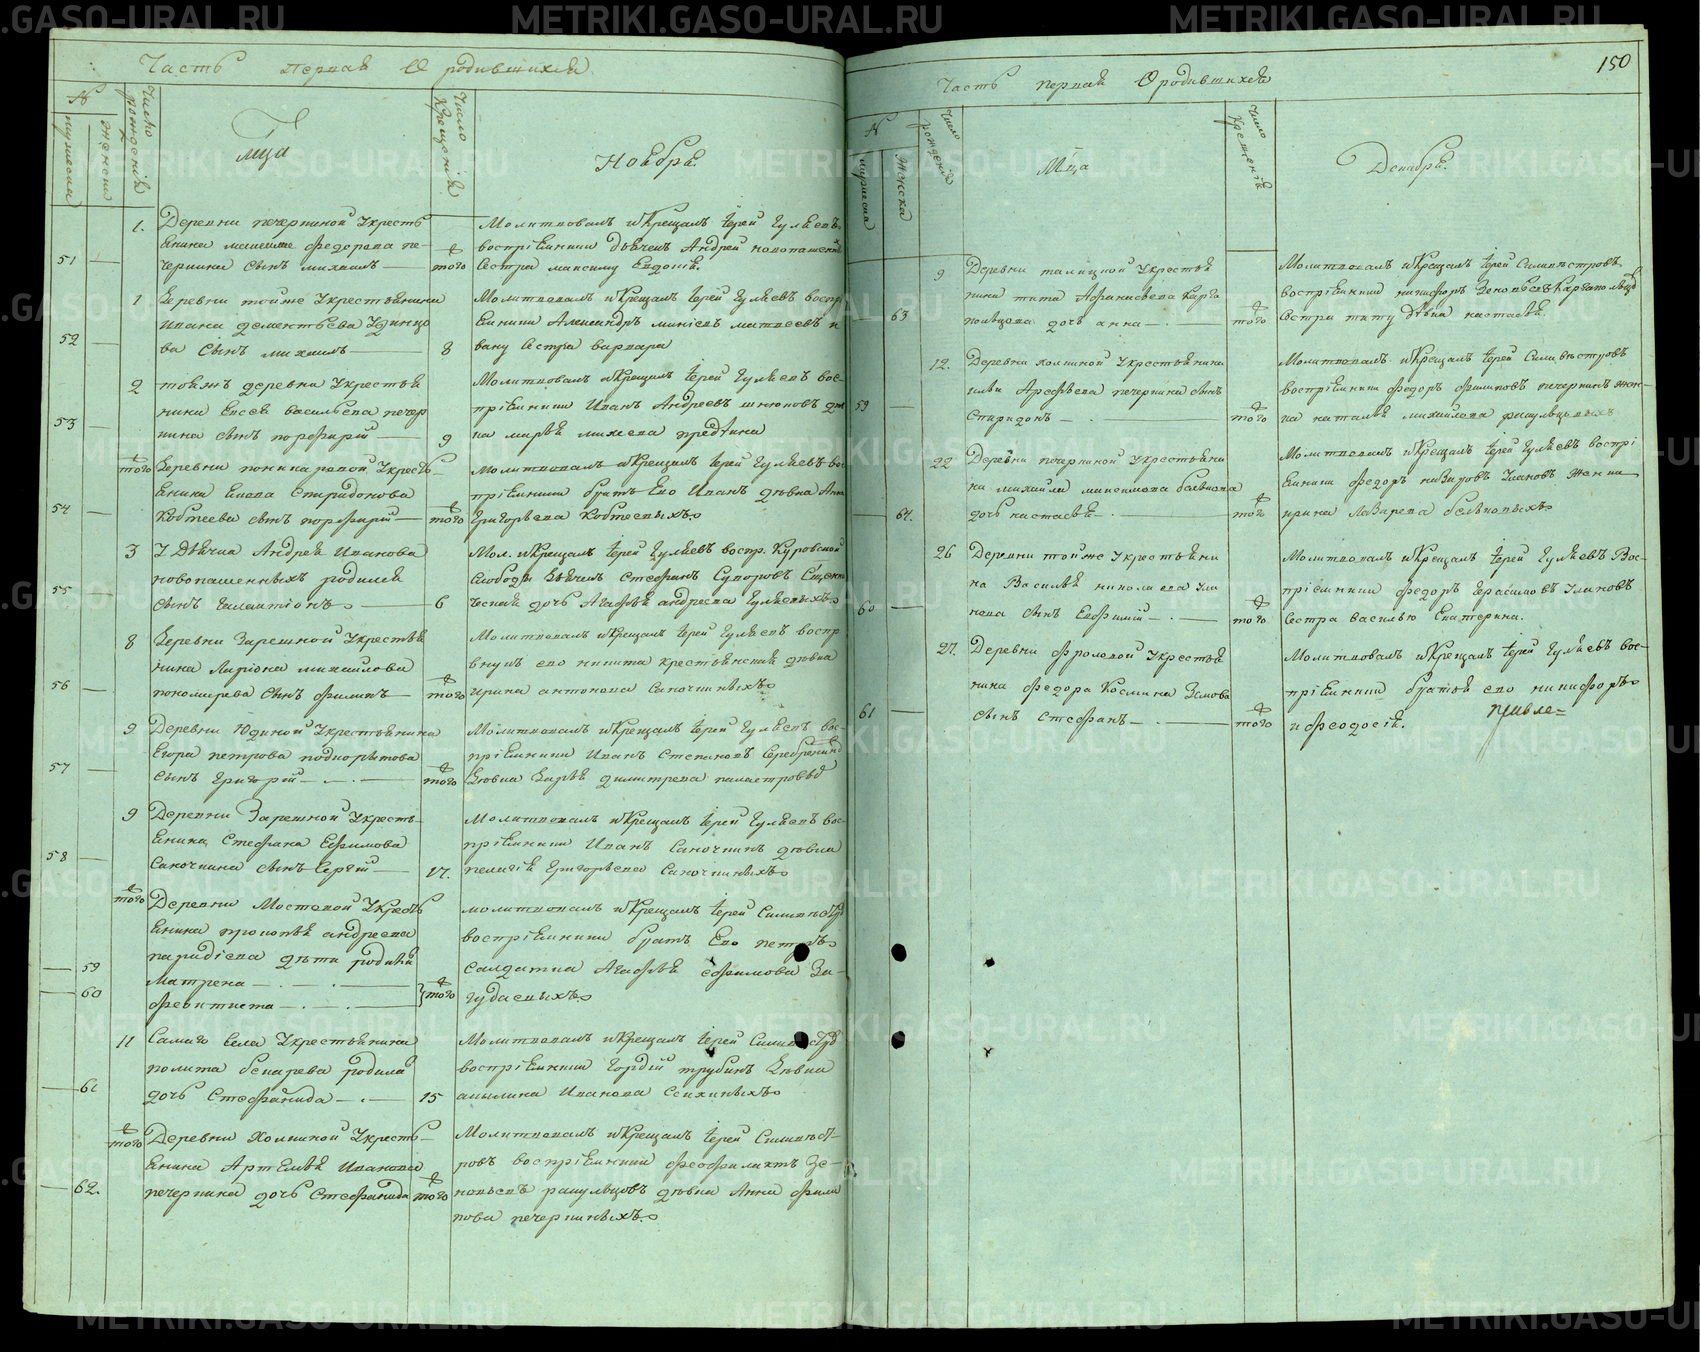 Часть первая О родившихся
№
мужеска
женска
Число рождения
Мца
Число Крещения
Ноября
51
1.
Деревни печеркиной Укресть
янина максима федорова пе-
черкина сынъ михаилъ
того
Молитвовалъ иКрещалъ іерей Гуляевъ
воспріемники дьячекъ Андрей новопашен
Сестра максиму Евдокія.
52
1
Деревни тойже Укрестьянина
Ивана дементьева Удинцо
ва сынъ михаилъ
8
Молитвовалъ иКрещалъ іерей Гуляевъ воспрі
емники Александръ матвеевъ и
вану Сестра варвара
53
2
тояжъ деревни Укрестья
нина Евсея васильева печер
кина сынъ порфирій
9
Молитвовалъ иКрещалъ іерей Гуляевъ вос-
пріемники Иванъ Андреевъ
на марья михеева
54
того
Деревни Укресть-
янина Спиридонова
Ковтеева сынъ порфирій
того
Молитвовалъ иКрещалъ іерей Гуляевъ во
пріемники братъ Ево Иванъ девка Анна
Григорьева Ковтеевыхъ
55
3
У Дьячка Андрея Иванова
новопашенныхъ родился
сынъ Галактіонъ
6
Мол. иКрещалъ іерей Гуляевъ воспр. Куровской
слободы дьячекъ Стефанъ Суворовъ Священ
ческая дочь Агафья андреева Гуляевыхъ
56
8
Деревни Зарешной Укрестья
нина Ларіона михайлова
пономарева сынъ филипъ
того
Молитвовалъ иКрещалъ іерей Гуляевъ воспр
внукъ ево никита крестьянская девка
ирина антонова Саночкиныхъ
57
9
Деревни Юдиной Укрестьянина
Егора петрова подкорытова
сынъ Григорій
того
Молитвовалъ иКрещалъ іерей Гуляевъ вос-
пріемники Иванъ Степановъ Серебренник
девка Дарья димитрева
58
9
Деревни Зарешной Укресть-
янина Стефана Ефимова
Саночкина сынъ Сергій
17.
Молитвовалъ иКрещалъ іерей Гуляевъ вос-
пріемники Иванъ Саночкинъ девка
пелагія Григорьева Саночкиныхъ
59
60
того
Деревни Мостовой Укресть
янина прокопья андреева
паридіева дети родились
матрена
феоктиста
того
молитвовалъ иКрещалъ іерей Силивестр
воспріемники братъ Ево петръ
солдатка Агафья ефимова За-
гудаевыхъ
61
11
Самаго села Укрестьянина
родила
дочь Стефанида
15
Молитвовалъ иКрещалъ іерей Силивестр
воспріемники Гордій трубинъ Девка
акылина Иванова
62.
того
Деревни Холкиной Укресть-
янина Артемья Иванова
печеркина дочь Стефанида
того
Молитвовалъ иКрещалъ іерей Силивест-
ровъ воспріемники феофилактъ Зе-
новьевъ девка Анна фили
пова печеркиныхъ
150
Часть первая О родившихся
№
мужеска
Женска
Число рождения
Мца
Число Крещения
Декабря.
63
9
Деревни талицкой Укрестья
нина тита Афанасьева Карга
польцова дочь анна
того
Молитвовалъ иКрещалъ іерей Силивестровъ
воспріемники никифоръ Зеновьевъ Каргапольцо
Сестра титу девка настасья.
59
12.
Деревни холкиной Укрестьянина
ильи Арефьева печеркина сынъ
Спиридонъ
того
Молитвовалъ иКрещалъ іерей Силивестровъ
воспріемники федоръ филиповъ печеркинъ жен-
ка наталья михайлова
64.
22
Деревни печеркиной Укрестьяни
на михайла максимова
дочь настасья
того
Молитвовалъ иКрещалъ іерей Гуляевъ воспрі
емники федоръ Улановъ Женка
ирина Лазарева
60
26
Деревни тойже Укрестьяни
на Василья николаева Ула
нова сынъ Евфимій
того
Молитвовалъ иКрещалъ іерей Гуляевъ Вос-
пріемники федоръ Герасимовъ Улановъ
Сестра василью Екатерина.
61
27.
Деревни фроловой Укрестья
нина федора Космина Замова
сынъ Стефанъ
того
Молитвовалъ иКрещалъ іерей Гуляевъ вос-
пріемники братья ево никифоръ
и феодосія.
METRIKI.GASO-URAL.RU